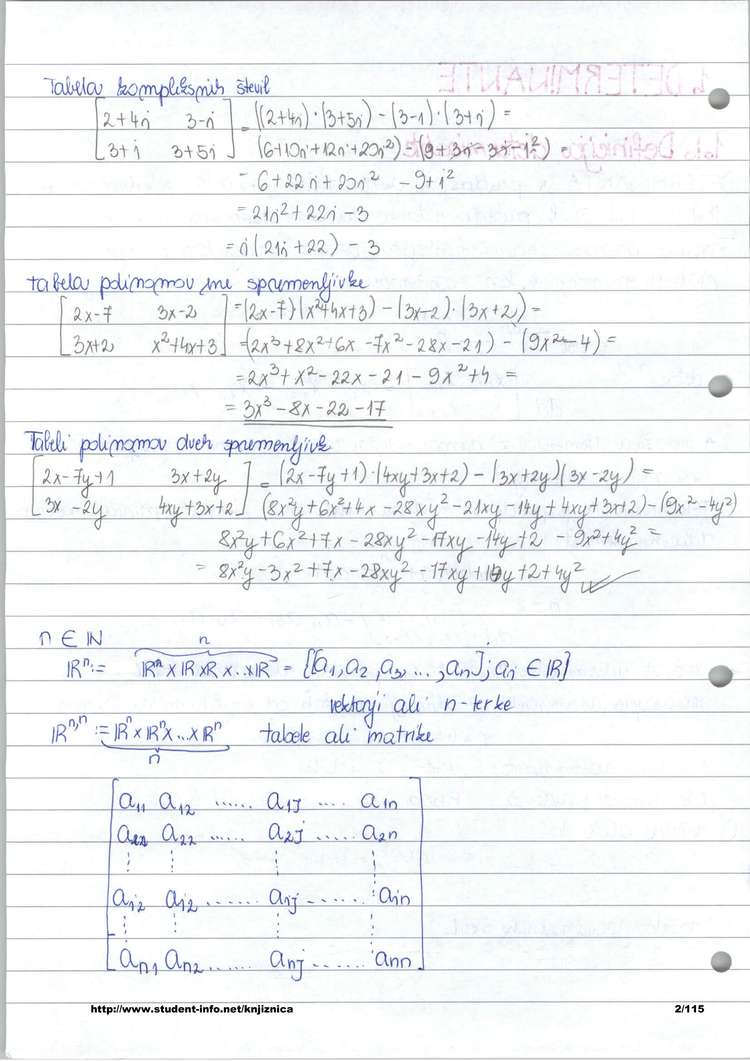 Tabela kompleksnih števil
[2+4i 3-i] = ((2+4i)·(3+5i) - (3-1)·(3+i) =
[3+i 3+5i] (6+10i+12i+20i²) - (9+3i-3i-i²) =
= 6+22i+20i² - 9+i²
= 21i²+22i-3
= i(21i+22) - 3
tabela polinomov ene spremenljivke
[2x-7 3x-2] = (2x-7)(x²+4x+3) - (3x-2)·(3x+2) =
[3x+2 x²+4x+3] = (2x³+8x²+6x-7x²-28x-21) - (9x²-4) =
= 2x³+x²-22x-21-9x²+4 =
= 3x³-8x-22-17
Tabeli polinomov dveh spremenljivk
[2x-7y+1 3x+2y] = (2x-7y+1)·(4xy+3x+2) - (3x+2y)(3x-2y) =
[3x-2y 4xy+3x+2] (8x²y+6x²+4x-28xy²-21xy-14y+4xy+3x+2)-(9x²-4y²)
8x²y+6x²+7x-28xy²-17xy-14y+2-9x²+4y² =
= 8x²y-3x²+7x-28xy²-17xy+14y+2+4y²
n ∈ IN n
IRⁿ:= IRⁿ x IR x IR x...x IR = {[a₁, a₂, a₃, ..., aₙ]; aᵢ ∈ IR}
vektorji ali n-terke
IRⁿ,ⁿ := IRⁿ x IRⁿ x...x IRⁿ tabele ali matrike
n
a₁₁ a₁₂ ...... a₁ⱼ .... a₁ₙ
a₂₂ a₂₂ ...... a₂ⱼ ..... a₂ₙ
⋮ ⋮ ⋮ ⋮
aᵢ₂ aᵢ₂ ....... aᵢⱼ ....... aᵢₙ
⋮ ⋮ ⋮ ⋮
aₙ₁ aₙ₂ ...... aₙⱼ ...... aₙₙ
http://www.student-info.net/knjiznica 2/115